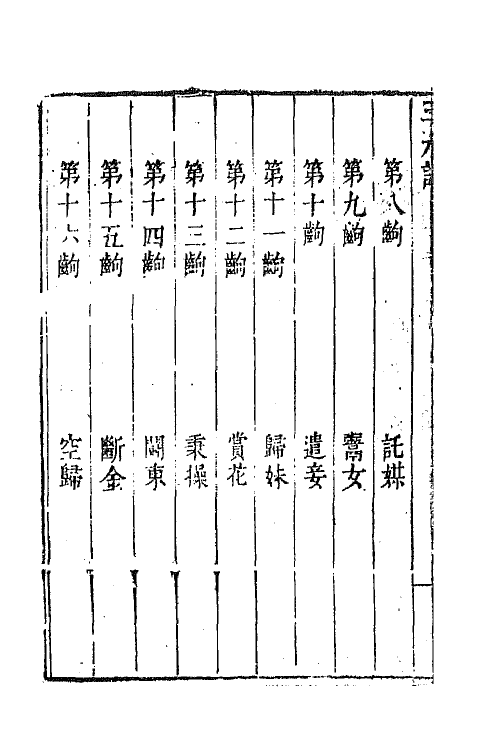 第八齣 託媒
第九齣 鬻女
第十齣 遣妾
第十一齣 歸妹
第十二齣 賞花
第十三齣 秉操
第十四齣 鬧東
第十五齣 斷金
第十六齣 空歸